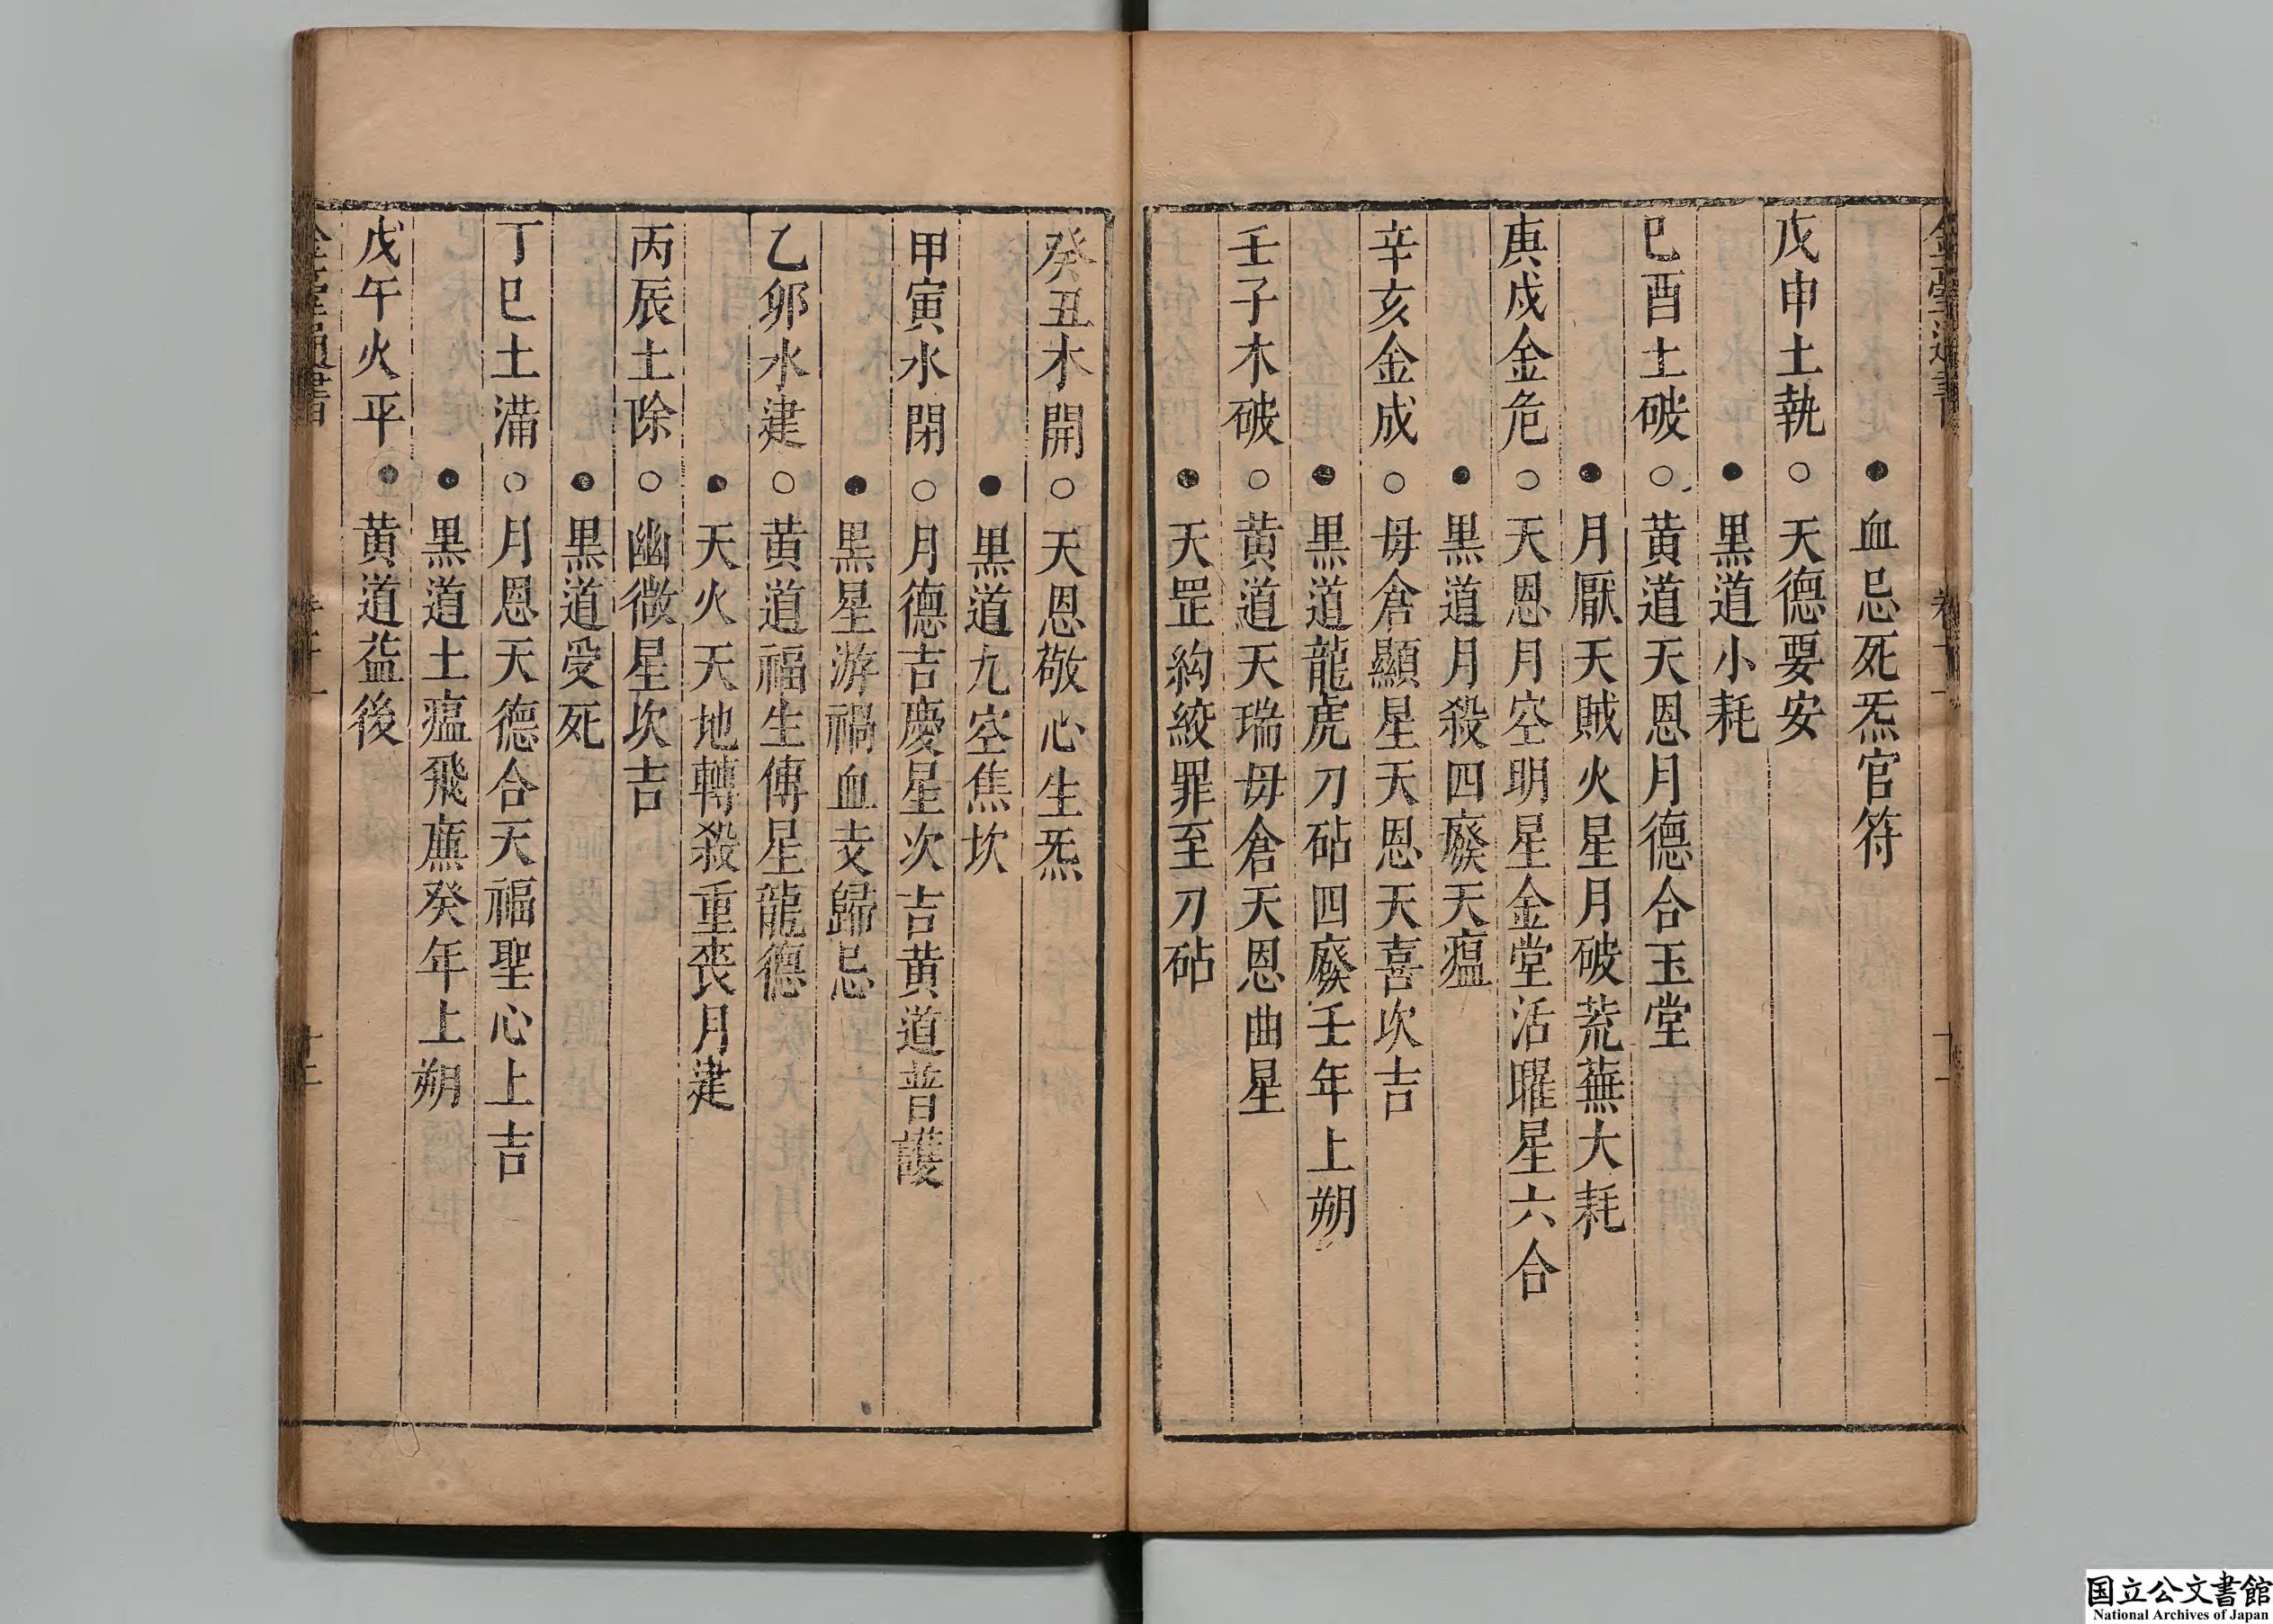 ●血忌死炁官符
戊申土執○天德要安
●黒道小耗
巳酉土破○黄道天恩月德合玉堂
●月厭天賊火星月破荒蕪大耗
庚戍金危○天恩月空明星金堂活曜星六合
●黒道月殺四廢天瘟
辛亥金成○毋倉顯星天恩天喜次吉
●黒道龍虎刀砧四廢壬年上朔
壬子木破○黄道天瑞毋倉天恩曲星
●天罡絇絞罪至刀砧
癸丑木開○天恩敬心生炁
●黒道九空焦坎
甲寅水閉○月德吉慶星次吉黄道普護
●黒星游禍血支歸忌
乙卯水建○黄道福生傳星龍德
●天火天地轉殺重喪月建
丙辰土除○幽微星次吉
●黒道受死
丁巳土滿○月恩天德合天福聖心上吉
●黒道土瘟飛廉癸年上朔
戊午火平●黄道益後
国立公文書館
National Archives of Japan